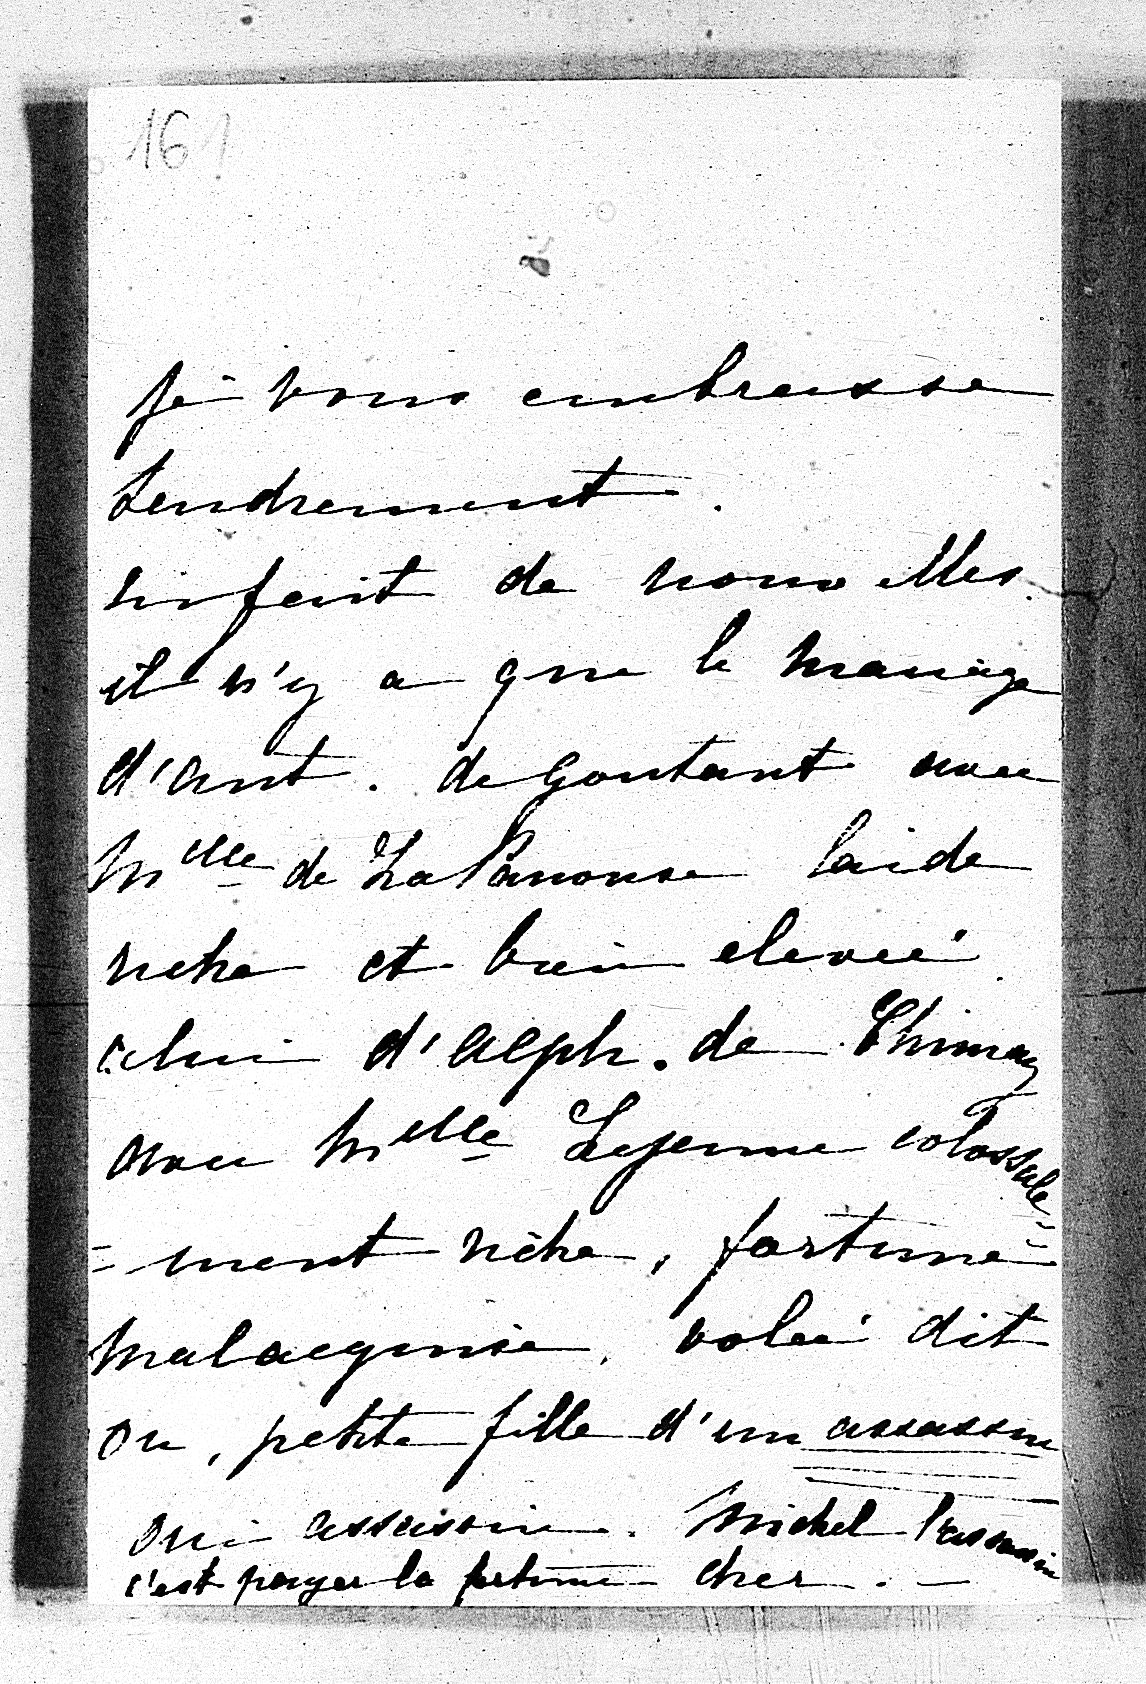 161
je vous embrasse
tendrement.
il n'y a que le mariage
d'ant. de Gontaut avec
Melle de La Panouse laide
riche et bien elevée
celui d'Alph. de Chimay
avec Melle Lejeune colossale-
=ment riche, fortune
malacquise, volée dit
on, petite fille d'un assassin
oui assassin. Michel l'assassin
c'est payer la fortune cher. -